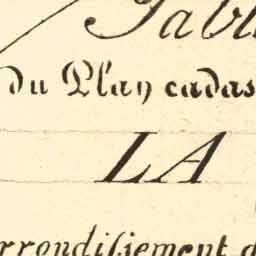 Tabl
du Plan cadas
LA
rrondissement d